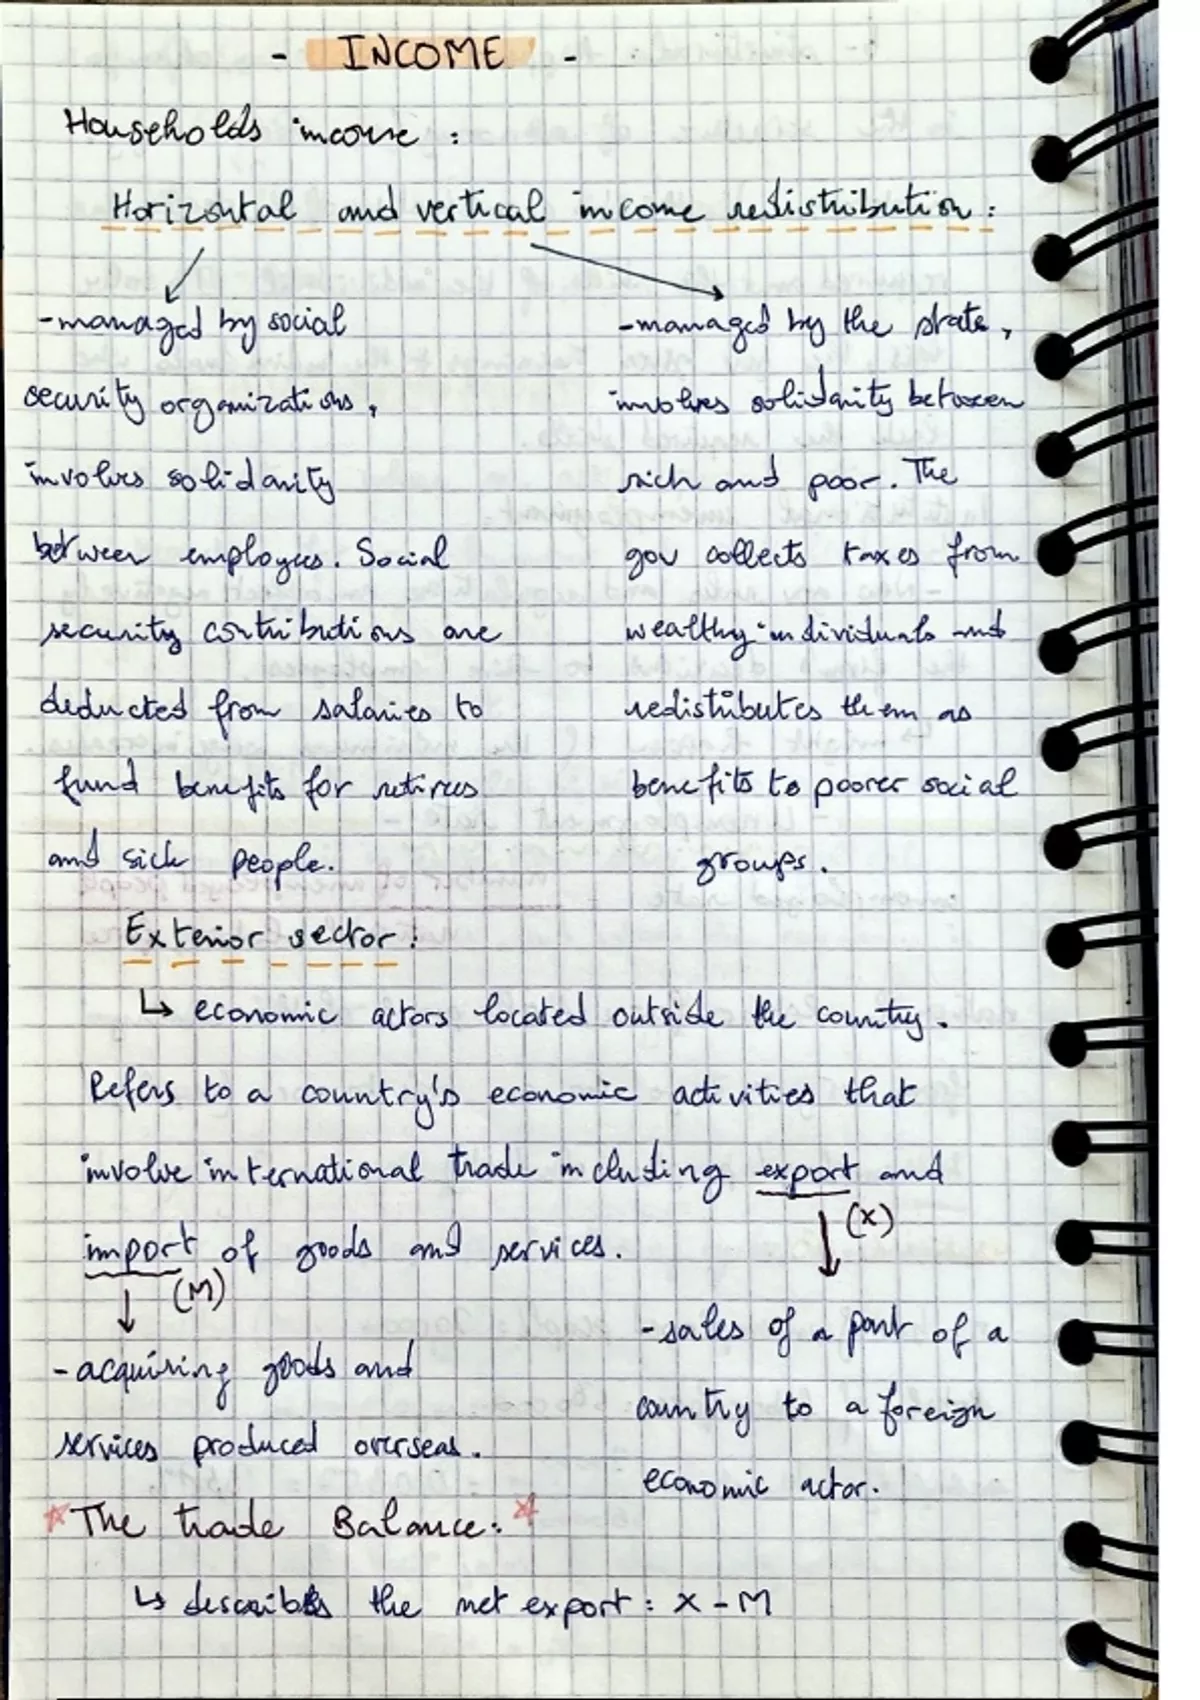 - INCOME -
Households income :
Horizontal and vertical income redistribution :
-managed by social
security organizations,
involves solidarity
between employees. Social
security contributions are
deducted from salaries to
fund benefits for retirees
and sick people.
-managed by the state,
involves solidarity between
rich and poor. The
gov collects taxes from
wealthy individuals and
redistributes them as
benefits to poorer social
groups.
Exterior sector :
↳ economic actors located outside the country.
Refers to a country's economic activities that
involve international trade including export and
(X)
import of goods and services.
(M)
-acquiring goods and
services produced overseas.
-sales of a part of a
country to a foreign
economic actor.
The trade Balance:
↳ describes the net export : X - M